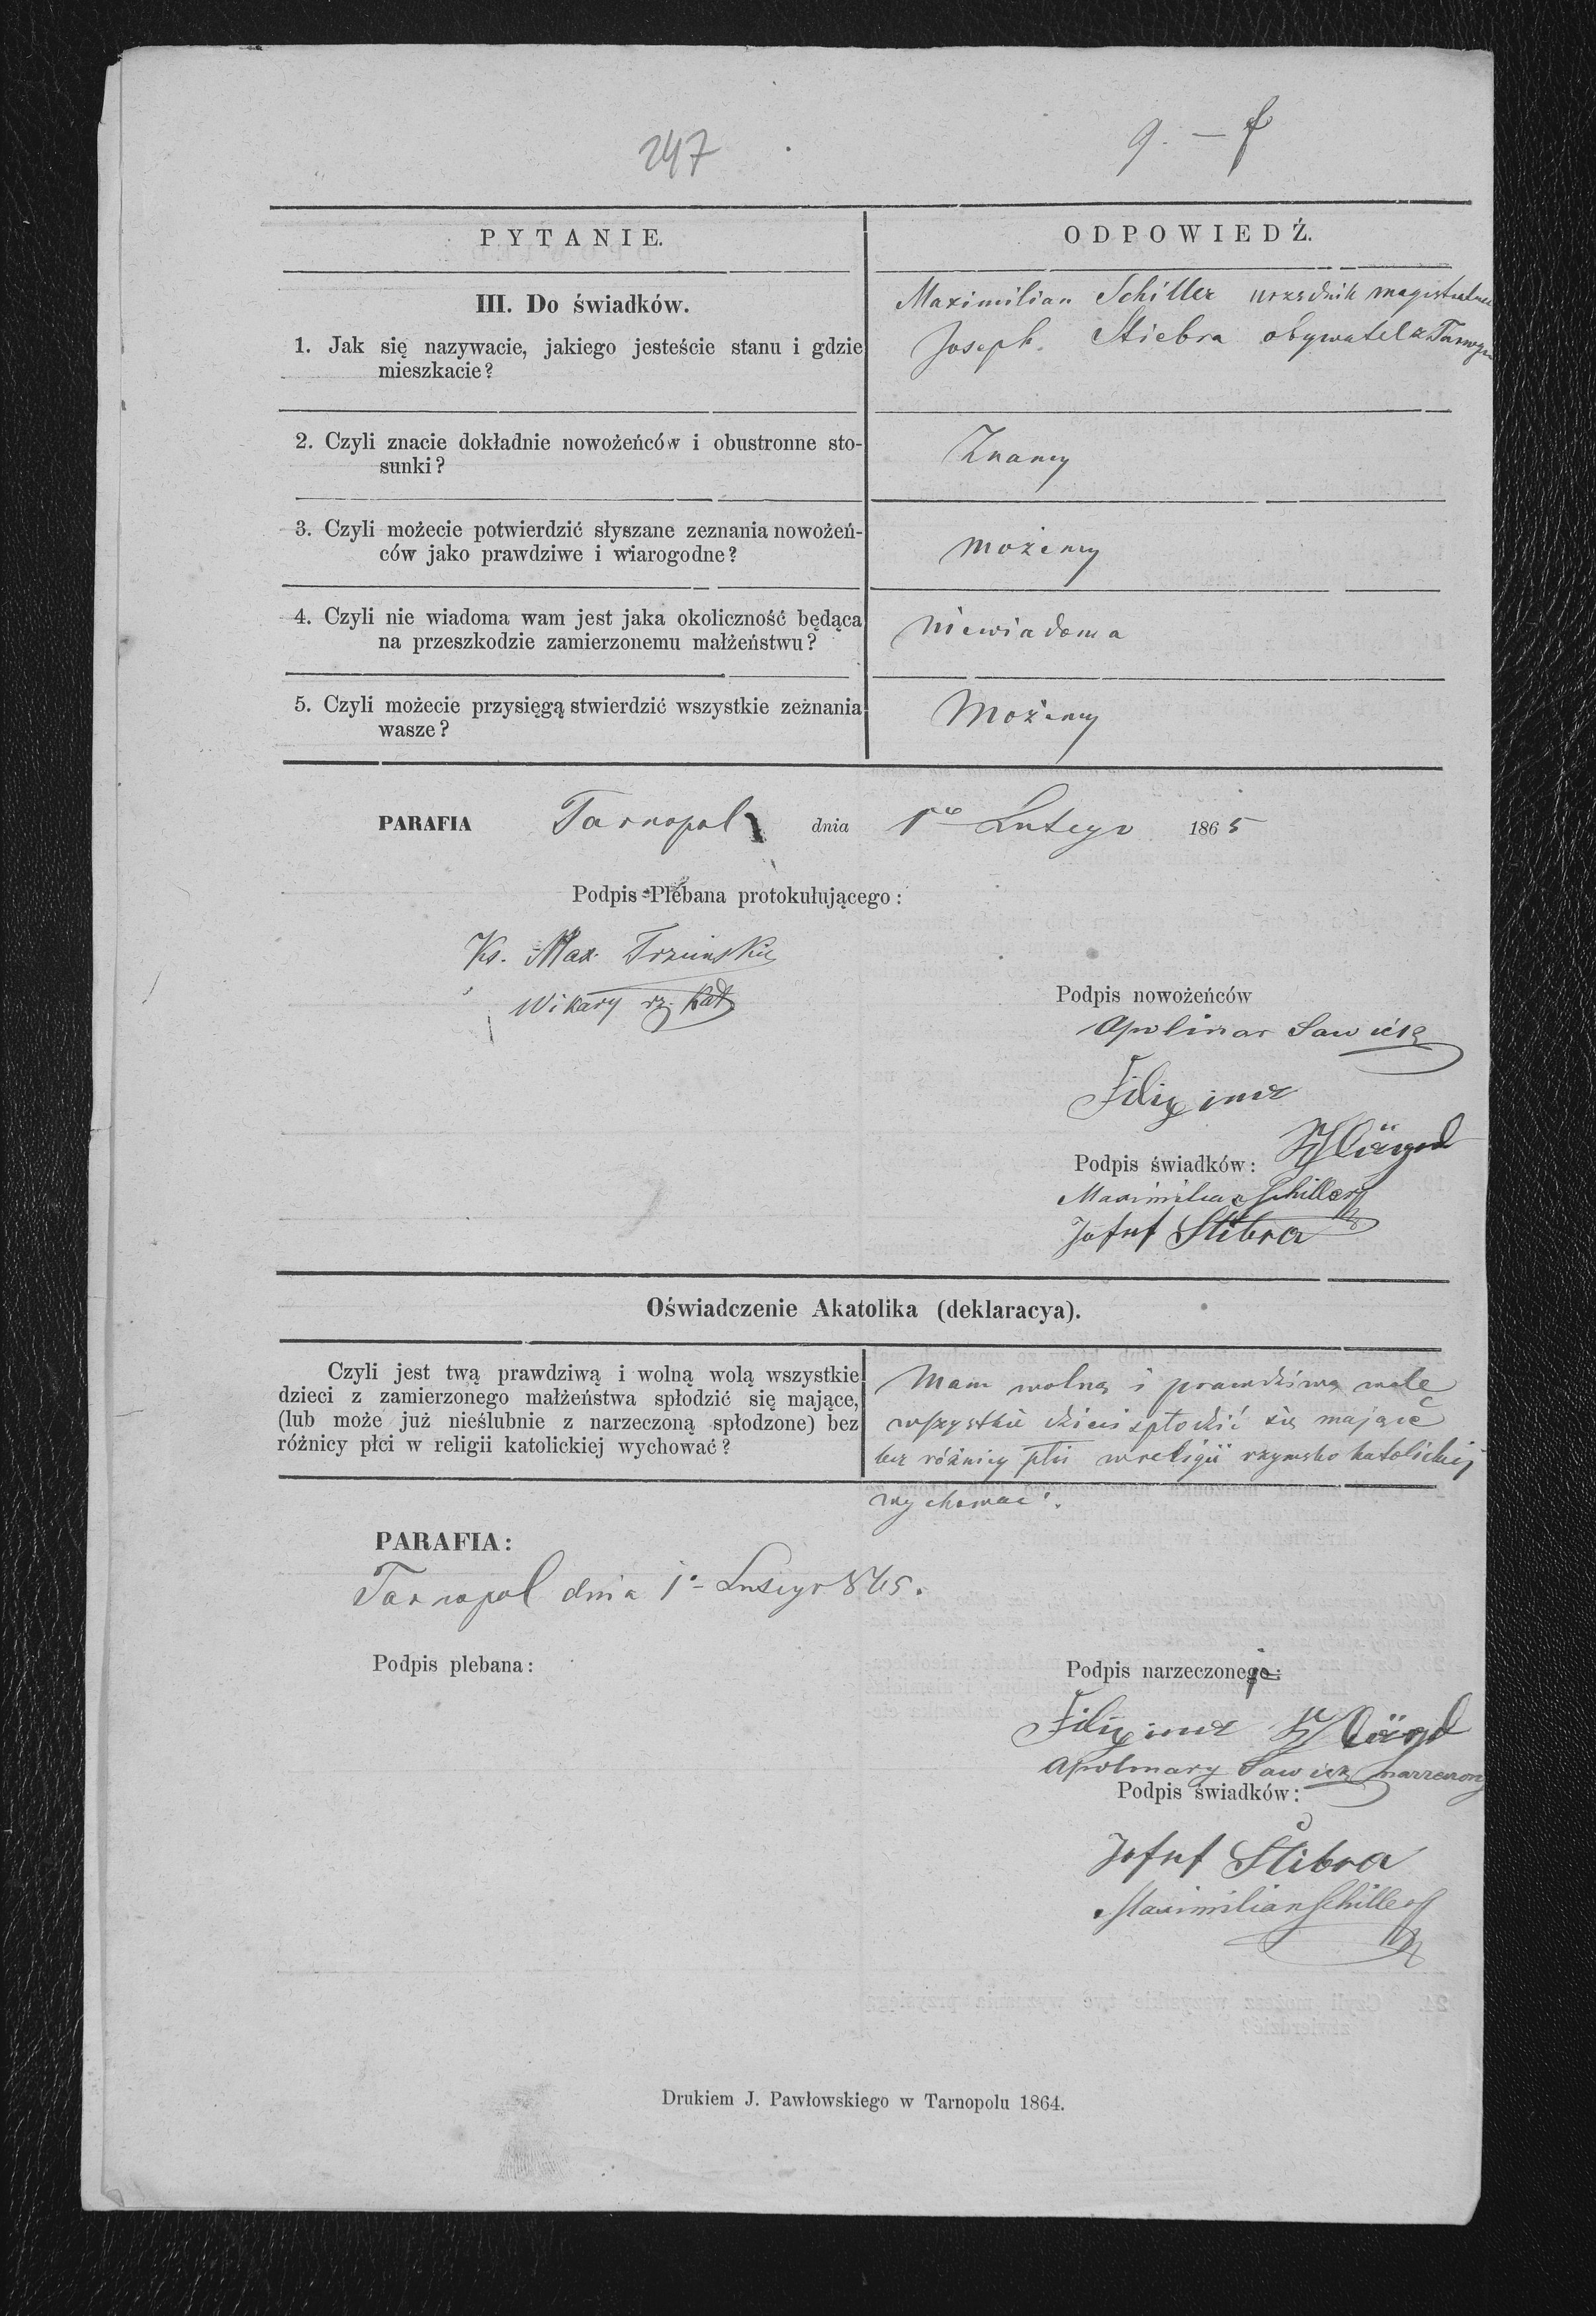 247
9. — f
PYTANIE.
ODPOWIEDŹ.
III. Do świadków.
1. Jak się nazywacie, jakiego jesteście stanu i gdzie
mieszkacie?
Maximilian Schiller urzędnik
Joseph Stiebra obywatel z
2. Czyli znacie dokładnie nowożeńców i obustronne sto-
sunki?
Znamy
3. Czyli możecie potwierdzić słyszane zeznania nowożeń-
ców jako prawdziwe i wiarogodne?
możemy
4. Czyli nie wiadoma wam jest jaka okoliczność będąca
na przeszkodzie zamierzonemu małżeństwu?
niewiadoma
5. Czyli możecie przysięgą stwierdzić wszystkie zeżnania
wasze?
Możemy
PARAFIA Tarnopol dnia 1go Lutego 1865
Podpis Plebana protokułującego:
Ks. Max.
Wikary rz. kat
Podpis nowożeńców
Apolinar
Podpis świadków:
Maximilian Schiller
Josef Stibra
Oświadczenie Akatolika (deklaracya).
Czyli jest twą prawdziwą i wolną wolą wszystkie
dzieci z zamierzonego małżeństwa spłodzić się mające,
(lub może już nieślubnie z narzeczoną spłodzone) bez
różnicy płci w religii katolickiej wychować?
Mam wolną i prawdziwą wolę
wszystkie dzieci spłodzić się mające
bez różnicy płci w religii rzymsko katolickiej
wychować.
PARAFIA:
Tarnopol dnia 1o Lutego 865.
Podpis plebana:
Podpis narzeczonej:
Apolinary narzeczony
Podpis świadków:
Josef Stibra
Maximilian Schiller
Drukiem J. Pawłowskiego w Tarnopolu 1864.